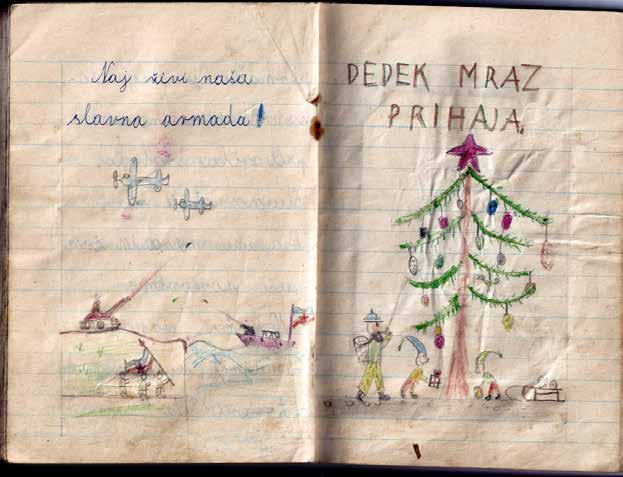 Naj živi naša
slavna armada!
DEDEK MRAZ
PRIHAJA